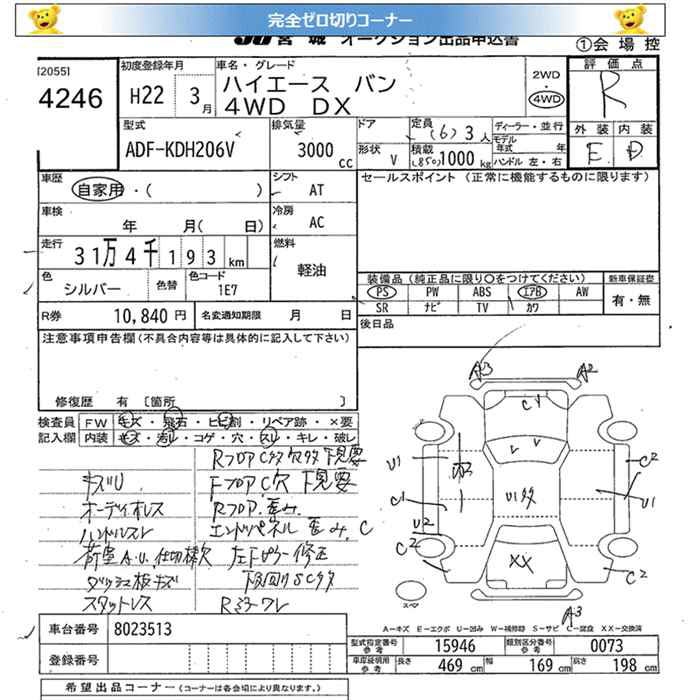 完全ゼロ切りコーナー
JU 宮 城 オークション出品申込書
①会 場 控
[2055]
4246
初度登録年月
H22 3月
車名・グレード
ハイエース バン
4WD DX
2WD
4WD
評 価 点
R
外 装 内 装
E D
型式
ADF-KDH206V
排気量
3000 cc
ドア
形状 V
定員 (6) 3人
積載 (850)1000 kg
ディーラー・並行
モデル年式 年
ハンドル 左・右
車歴
自家用・( )
シフト
AT
セールスポイント (正常に機能するものに限ります)
車検
年 月( 日)
冷房
AC
走行
31万4千193 km
燃料
軽油
色
シルバー
色替
色コード
1E7
装備品 (純正品に限り○をつけてください)
新車保証書
PS PW ABS エアB AW
SR ナビ TV カワ
有・無
R券 10,840 円
名変通知期限 月 日
後日品
注意事項申告欄 (不具合内容等は具体的に記入して下さい)
修復歴 有 [箇所 ]
検査員記入欄
FW キズ・飛石・ヒビ割・リペア跡・×要
内装 キズ・汚れ・コゲ・穴・スレ・キレ・破レ
RフロアCタタ穴タタ下見要
キズU FフロアC穴 下見要
オーディオレス Rフロア.歪み.
ハンドルスレ エンドパネル 歪み.C
荷室A.U.仕切棒欠 左下ピラー修正
ダッシュ板キズ 下回りSCタタ
スタットレス Rミラーワレ
A3 A2
CY
U1
C1
U2
C2
U1タタ
XX
C2
U1
C2
A3
スペア
A-キズ E-エクボ U-凹み W-補修跡 S-サビ C-腐食 XX-交換済
車台番号 8023513
登録番号
型式指定番号 参考 15946
類別区分番号 参考 0073
車庫証明用 参考 長さ 469 cm 幅 169 cm 高さ 198 cm
希望出品コーナー (コーナーは各会場により異なります。)